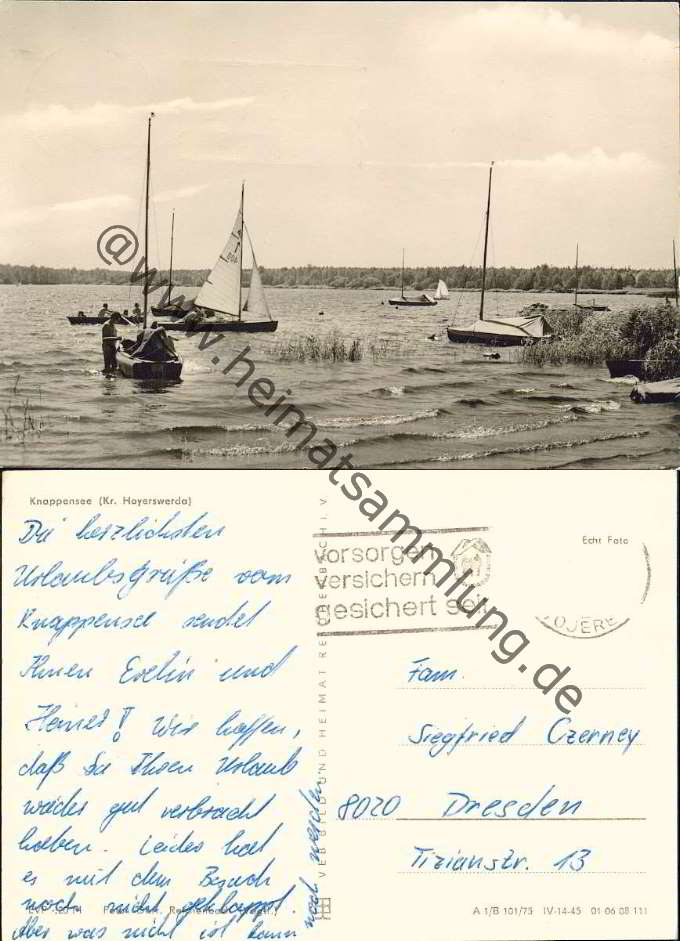 @www.heimatsammlung.de
Knappensee (Kr. Hoyerswerda)
Die herzlichsten
Urlaubsgrüße vom
Knappensee sendet
Ihnen Evelin und
Heiner! Wir hoffen,
daß Sie Ihren Urlaub
weiter gut verbracht
haben. Leider hat
es mit dem Besuch
noch nicht geklappt.
Aber was nicht ist kann
noch werden
VERLAG BILD UND HEIMAT REICHENBACH I. V.
vorsorgen
versichern
gesichert sein
Echt Foto
Fam.
Siegfried Czerney
8020 Dresden
Tizianstr. 13
A 1/B 101/75 IV-14-45 01 06 08 111